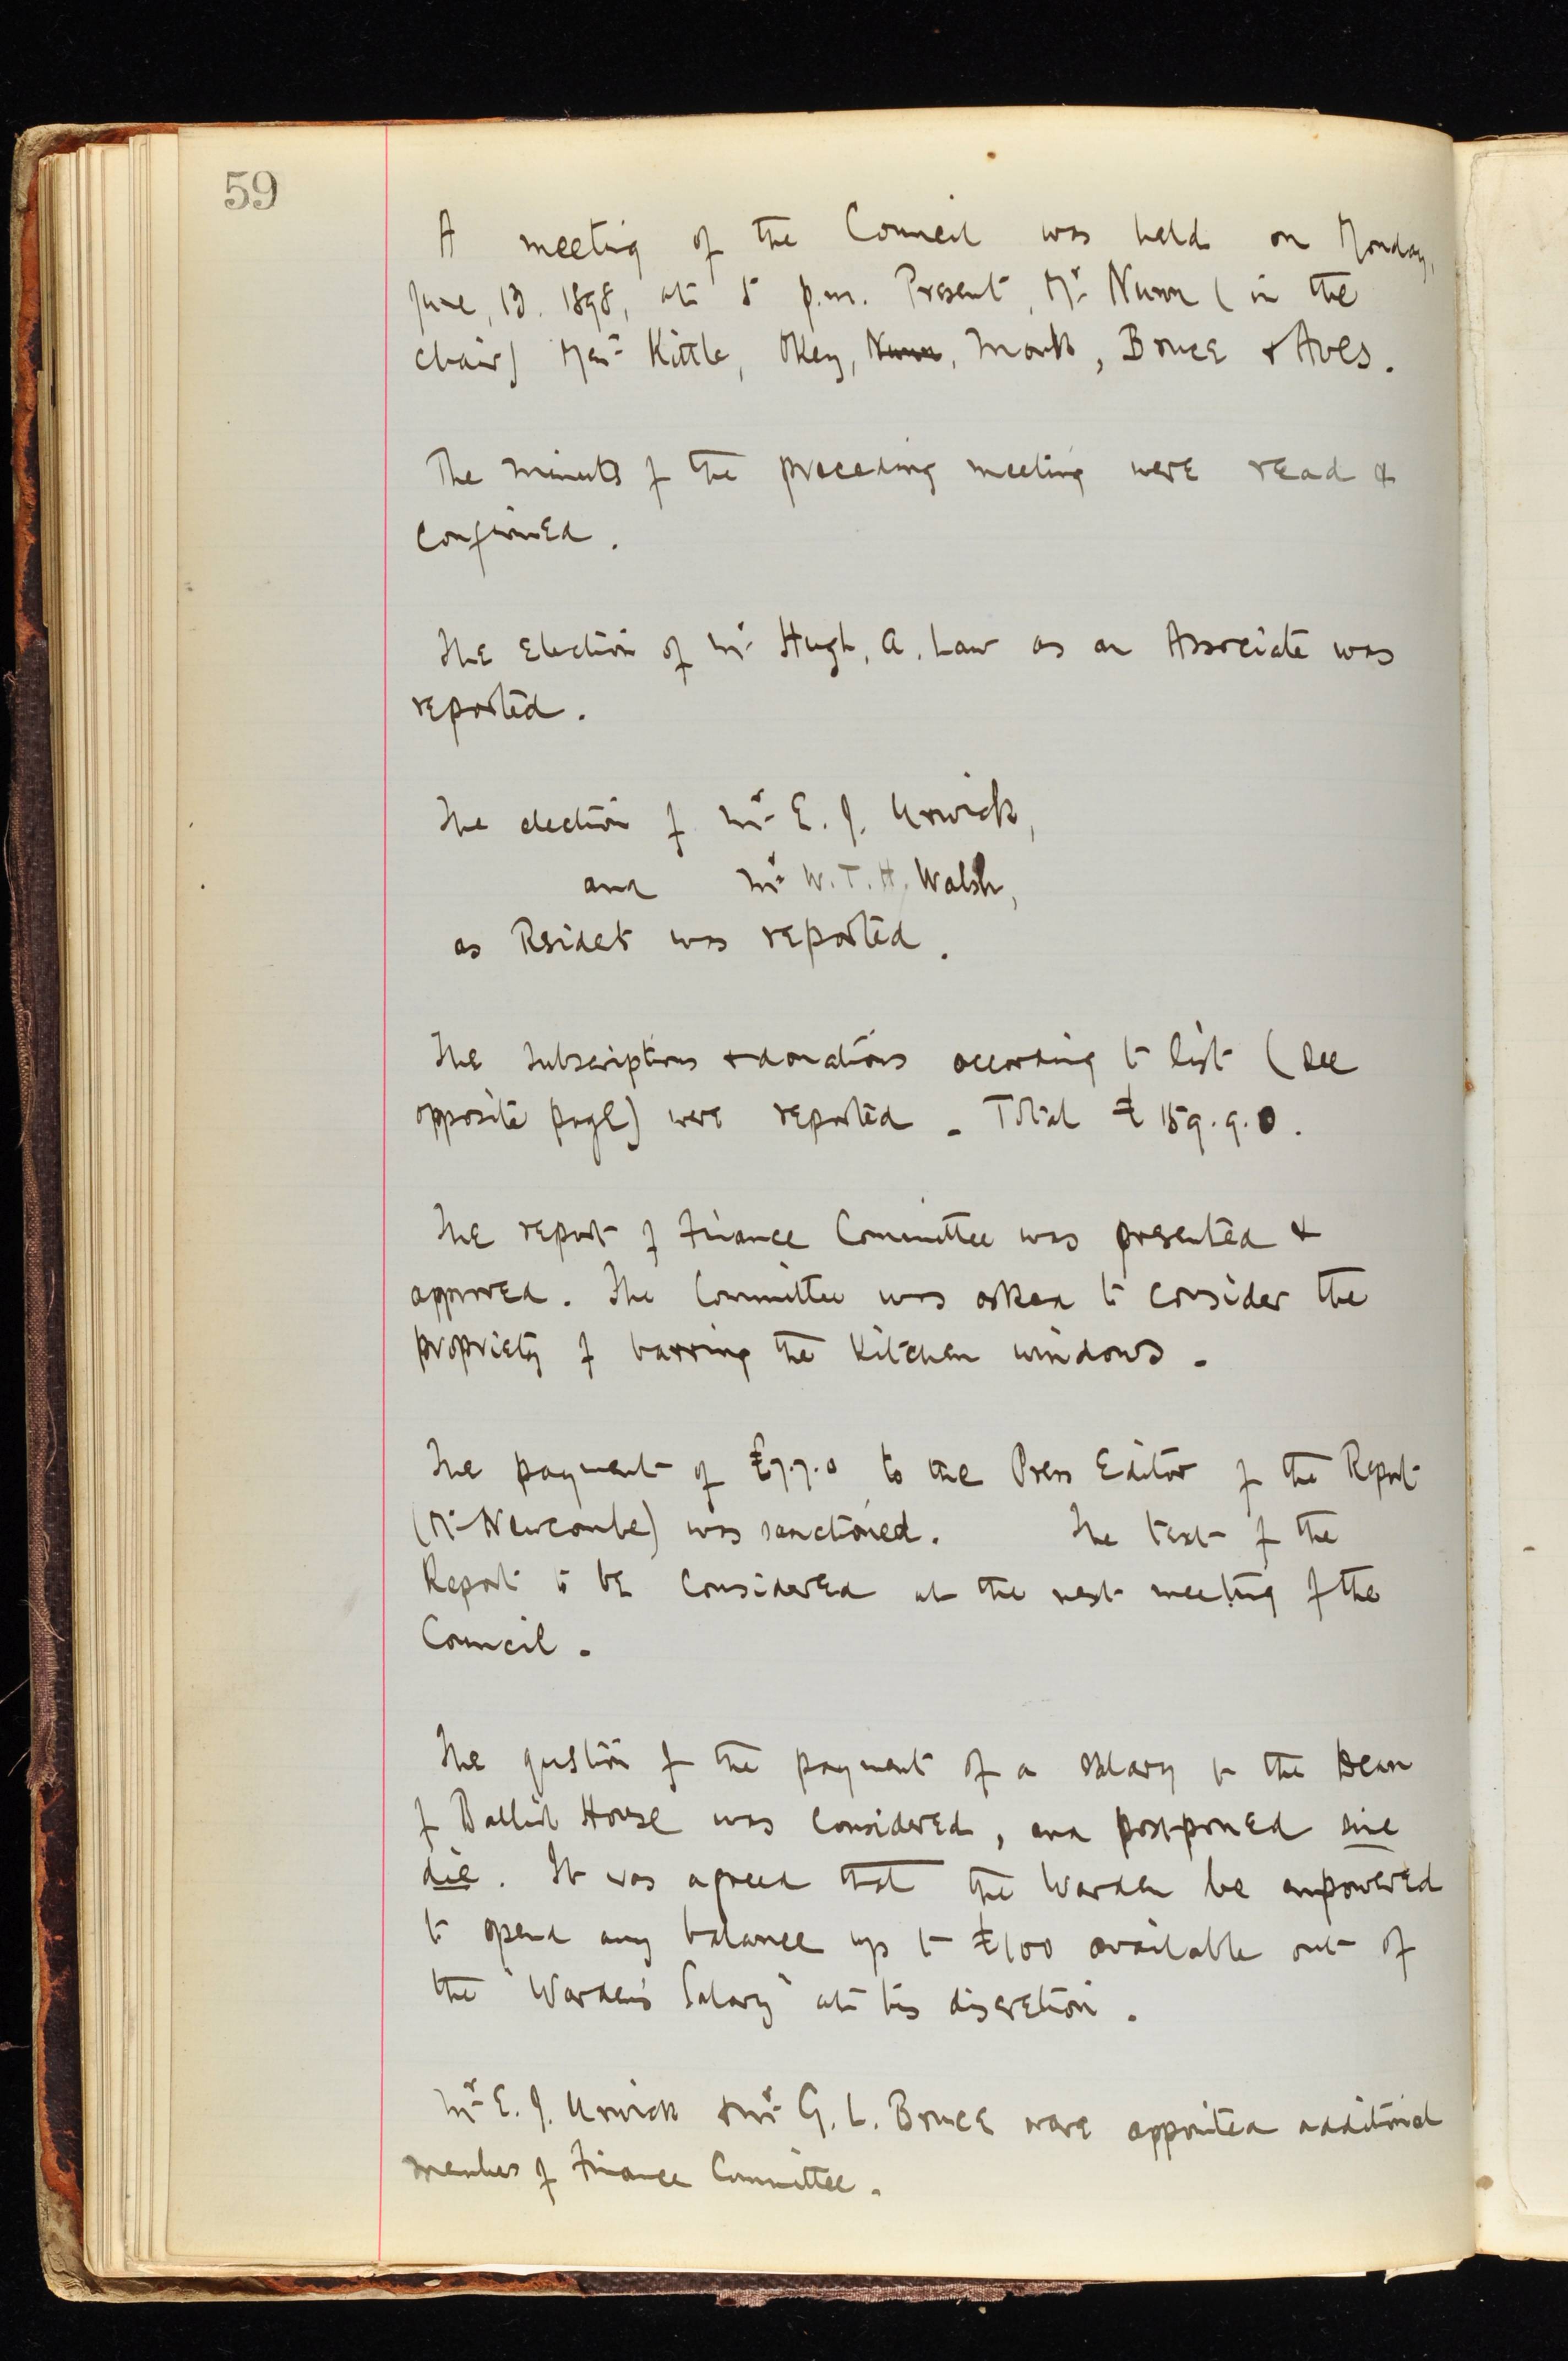 59
A meeting of the Council was held on Monday,
June, 13. 1898, at 5 p.m. Present, Mr Nunn (in the
chair) Messrs Kittle, Okey, Nunn, Monk, Bruce & Aves.
The minutes of the preceding meeting were read &
confirmed.
The Election of Mr Hugh, A. Law as an Associate was
reported.
The election of Mr E. J. Urwick,
and Mr W. T. H. Walsh,
as Resident was reported.
The subscriptions & donations according to list (see
opposite page) were reported. Total £159.9.0.
The report of Finance Committee was presented &
approved. The Committee was asked to consider the
propriety of barring the kitchen windows.
The payment of £7.7.0 to the Press Editor of the Report
(Mr Newcombe) was sanctioned. The text of the
Report to be considered at the next meeting of the
Council.
The question of the payment of a salary to the Dean
of Balliol House was considered, and postponed sine
die. It was agreed that the Warden be empowered
to spend any balance up to £100 available out of
the "Warden's Salary" at his discretion.
Mr E. J. Urwick & Mr G. L. Bruce were appointed additional
members of Finance Committee.